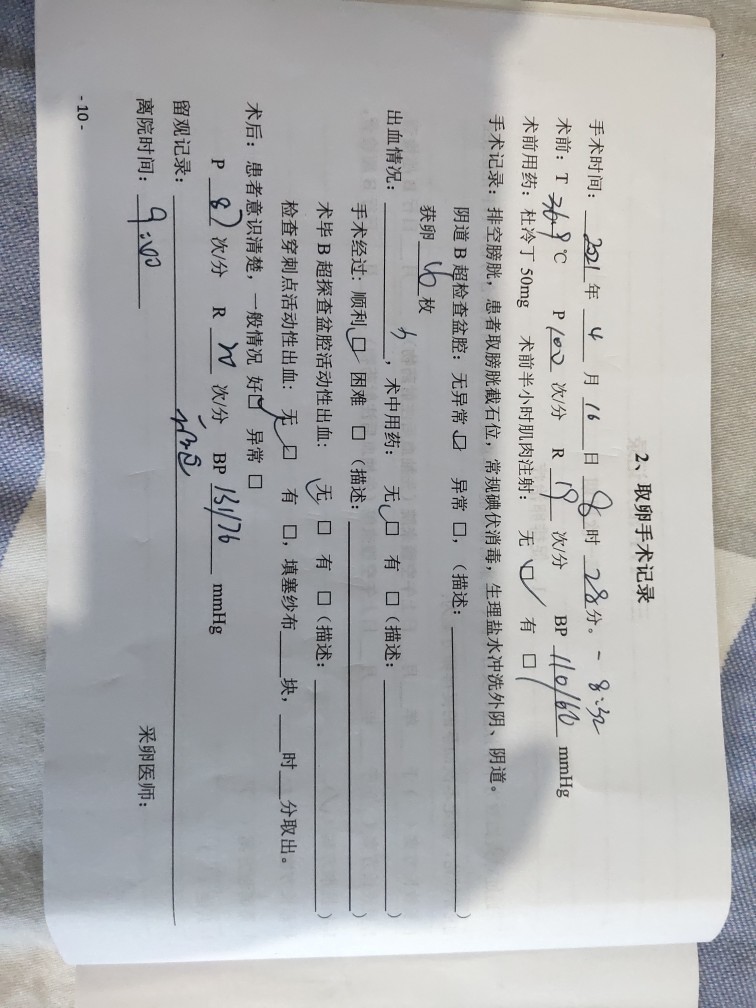 2、取卵手术记录
手术时间: 2021 年 4 月 16 日 8 时 28 分。- 8:32
术前: T 36.9 ℃ P 100 次/分 R 19 次/分 BP 110/60 mmHg
术前用药: 杜冷丁 50mg 术前半小时肌肉注射: 无 □✓ 有 □
手术记录: 排空膀胱, 患者取膀胱截石位, 常规碘伏消毒, 生理盐水冲洗外阴、阴道。
阴道 B 超检查盆腔: 无异常 □✓ 异常 □, (描述: )
获卵 枚
出血情况: , 术中用药: 无 □✓ 有 □ (描述: )
手术经过: 顺利 □✓ 困难 □ (描述: )
术毕 B 超探查盆腔活动性出血: 无 □✓ 有 □ (描述: )
检查穿刺点活动性出血: 无 □✓ 有 □, 填塞纱布 块, 时 分取出。
术后: 患者意识清楚, 一般情况 好 □✓ 异常 □
P 87 次/分 R 20 次/分 BP 131/76 mmHg
留观记录:
离院时间: 9:00 采卵医师:
- 10 -